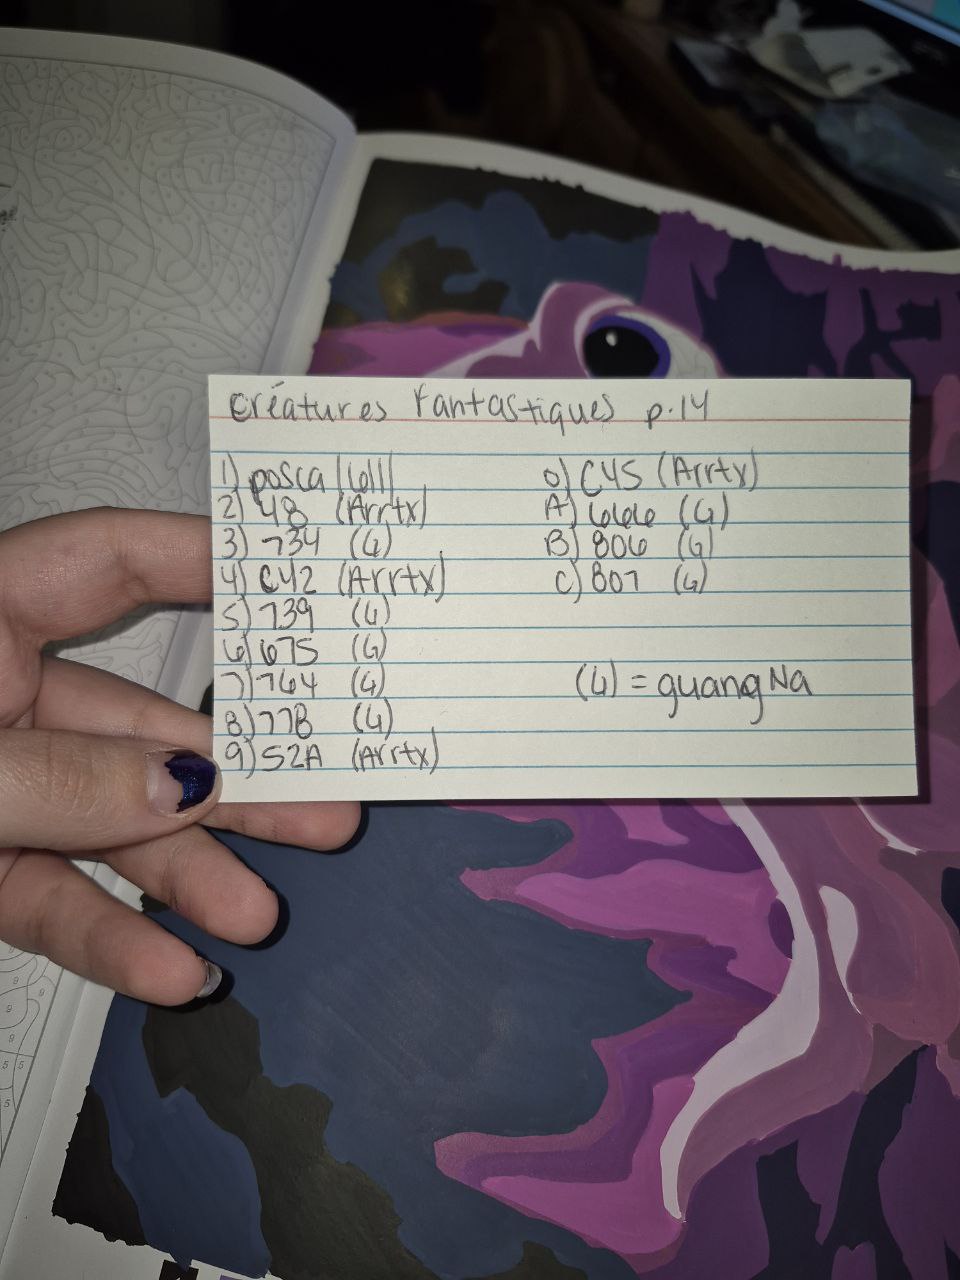 créatures fantastiques p.14
1) posca
2) 48 (Arrtx)
3) 734 (G)
4) C42 (Arrtx)
5) 739 (G)
6) 675 (G)
7) 764 (G)
8) 778 (G)
9) 52A (Arrtx)
0) C45 (Arrtx)
A) 666 (G)
B) 806 (G)
C) 807 (G)
(G) = guangNa
9
9
9
5 5
5